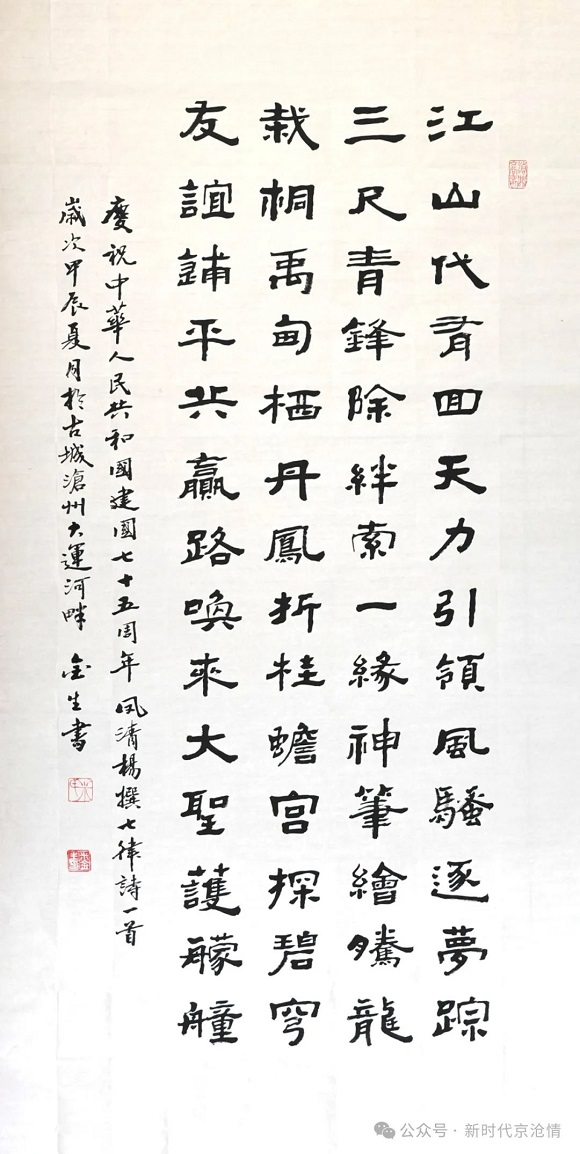 江山代有回天力引領風騷逐夢踪
三尺青鋒除絆索一緣神筆繪騰龍
栽桐禹甸栖丹鳳折桂蟾宫探碧穹
友誼鋪平共贏路喚來大聖護艨艟
慶祝中華人民共和國建國七十五周年 凤清楊撰七律詩一首
歲次甲辰夏月於古城滄州大運河畔 金生書
公众号 · 新时代京沧情